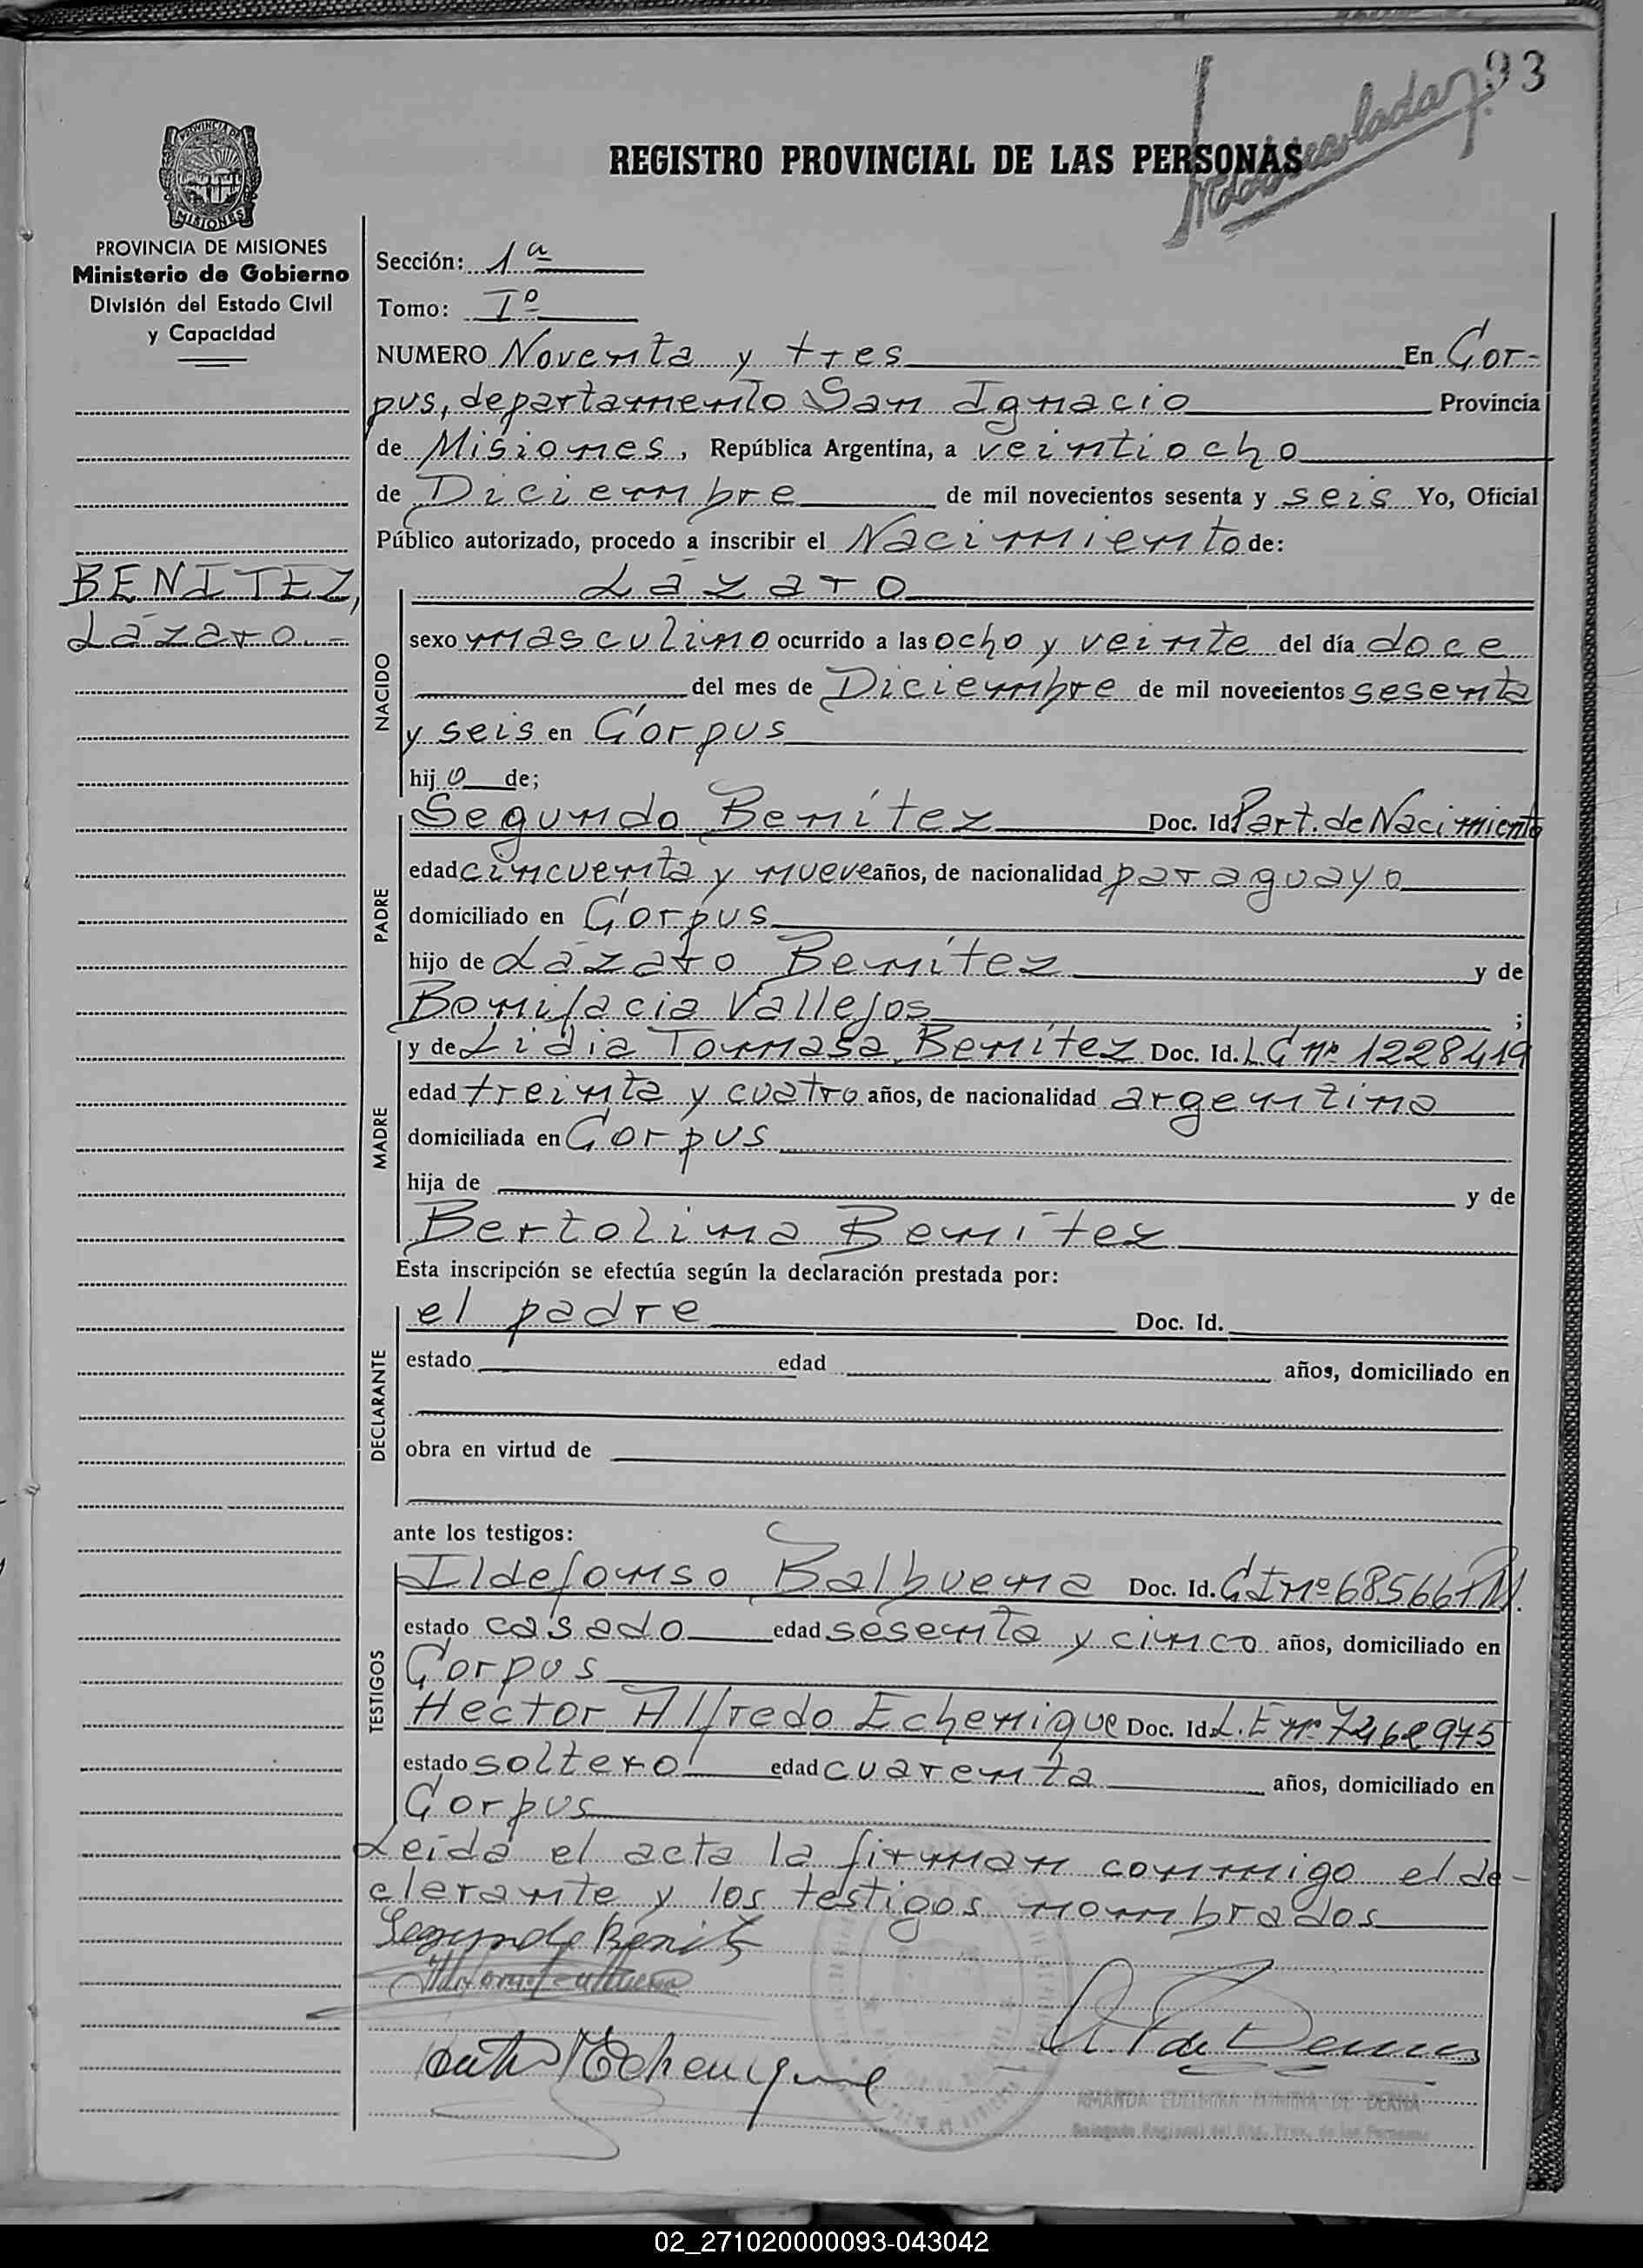 93
PROVINCIA DE
MISIONES
REGISTRO PROVINCIAL DE LAS PERSONAS
PROVINCIA DE MISIONES
Ministerio de Gobierno
División del Estado Civil
y Capacidad
Sección: 1ª
Tomo: Iº
NUMERO Noventa y tres En Cor-
pus, departamento San Ignacio Provincia
de Misiones, República Argentina, a veintiocho
de Diciembre de mil novecientos sesenta y seis Yo, Oficial
Público autorizado, procedo a inscribir el Nacimiento de:
BENITEZ,
Lázaro.-
NACIDO
Lázaro
sexo masculino ocurrido a las ocho y veinte del día doce
del mes de Diciembre de mil novecientos sesenta
y seis en Corpus
hijo de;
PADRE
Segundo Benítez Doc. Id. Part. de Nacimiento
edad cincuenta y nueve años, de nacionalidad paraguayo
domiciliado en Corpus
hijo de Lázaro Benítez y de
Bonifacia Vallejos ;
MADRE
y de Lidia Tomasa Benítez Doc. Id. L.C nº 1228419
edad treinta y cuatro años, de nacionalidad argentina
domiciliada en Corpus
hija de y de
Bertolina Benítez
Esta inscripción se efectúa según la declaración prestada por:
DECLARANTE
el padre Doc. Id.
estado edad años, domiciliado en
obra en virtud de
ante los testigos:
TESTIGOS
Ildefonso Balbuena Doc. Id. C I nº 68566
estado casado edad sesenta y cinco años, domiciliado en
Corpus
Hector Alfredo Echenique Doc. Id. L.E nº 7462975
estado soltero edad cuarenta años, domiciliado en
Corpus
Leída el acta la firman conmigo el de-
clarante y los testigos nombrados
Segundo Benitez
Echenique
AMANDA DE DERNA
02_271020000093-043042